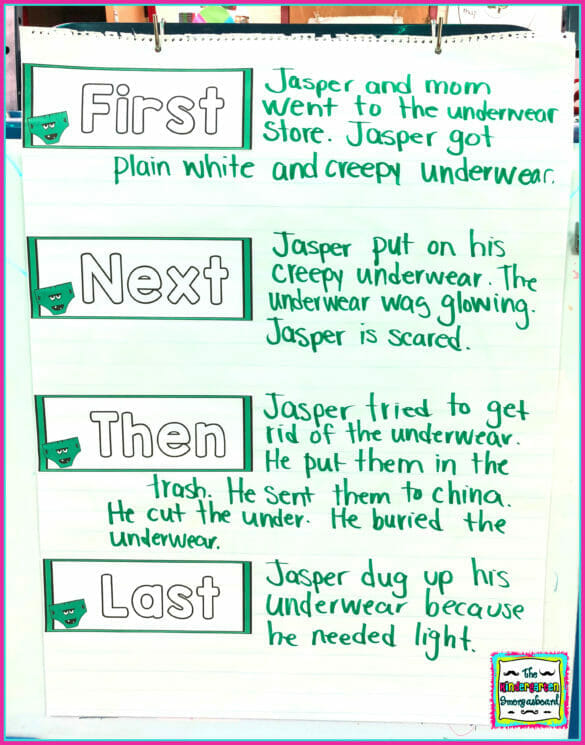 First
Jasper and mom
went to the underwear
Store. Jasper got
plain white and creepy underwear.
Next
Jasper put on his
creepy underwear. The
underwear was glowing.
Jasper is scared.
Then
Jasper tried to get
rid of the underwear.
He put them in the
trash. He sent them to china.
He cut the under. He buried the
underwear.
Last
Jasper dug up his
underwear because
he needed light.
The
Kindergarten
Smorgasboard